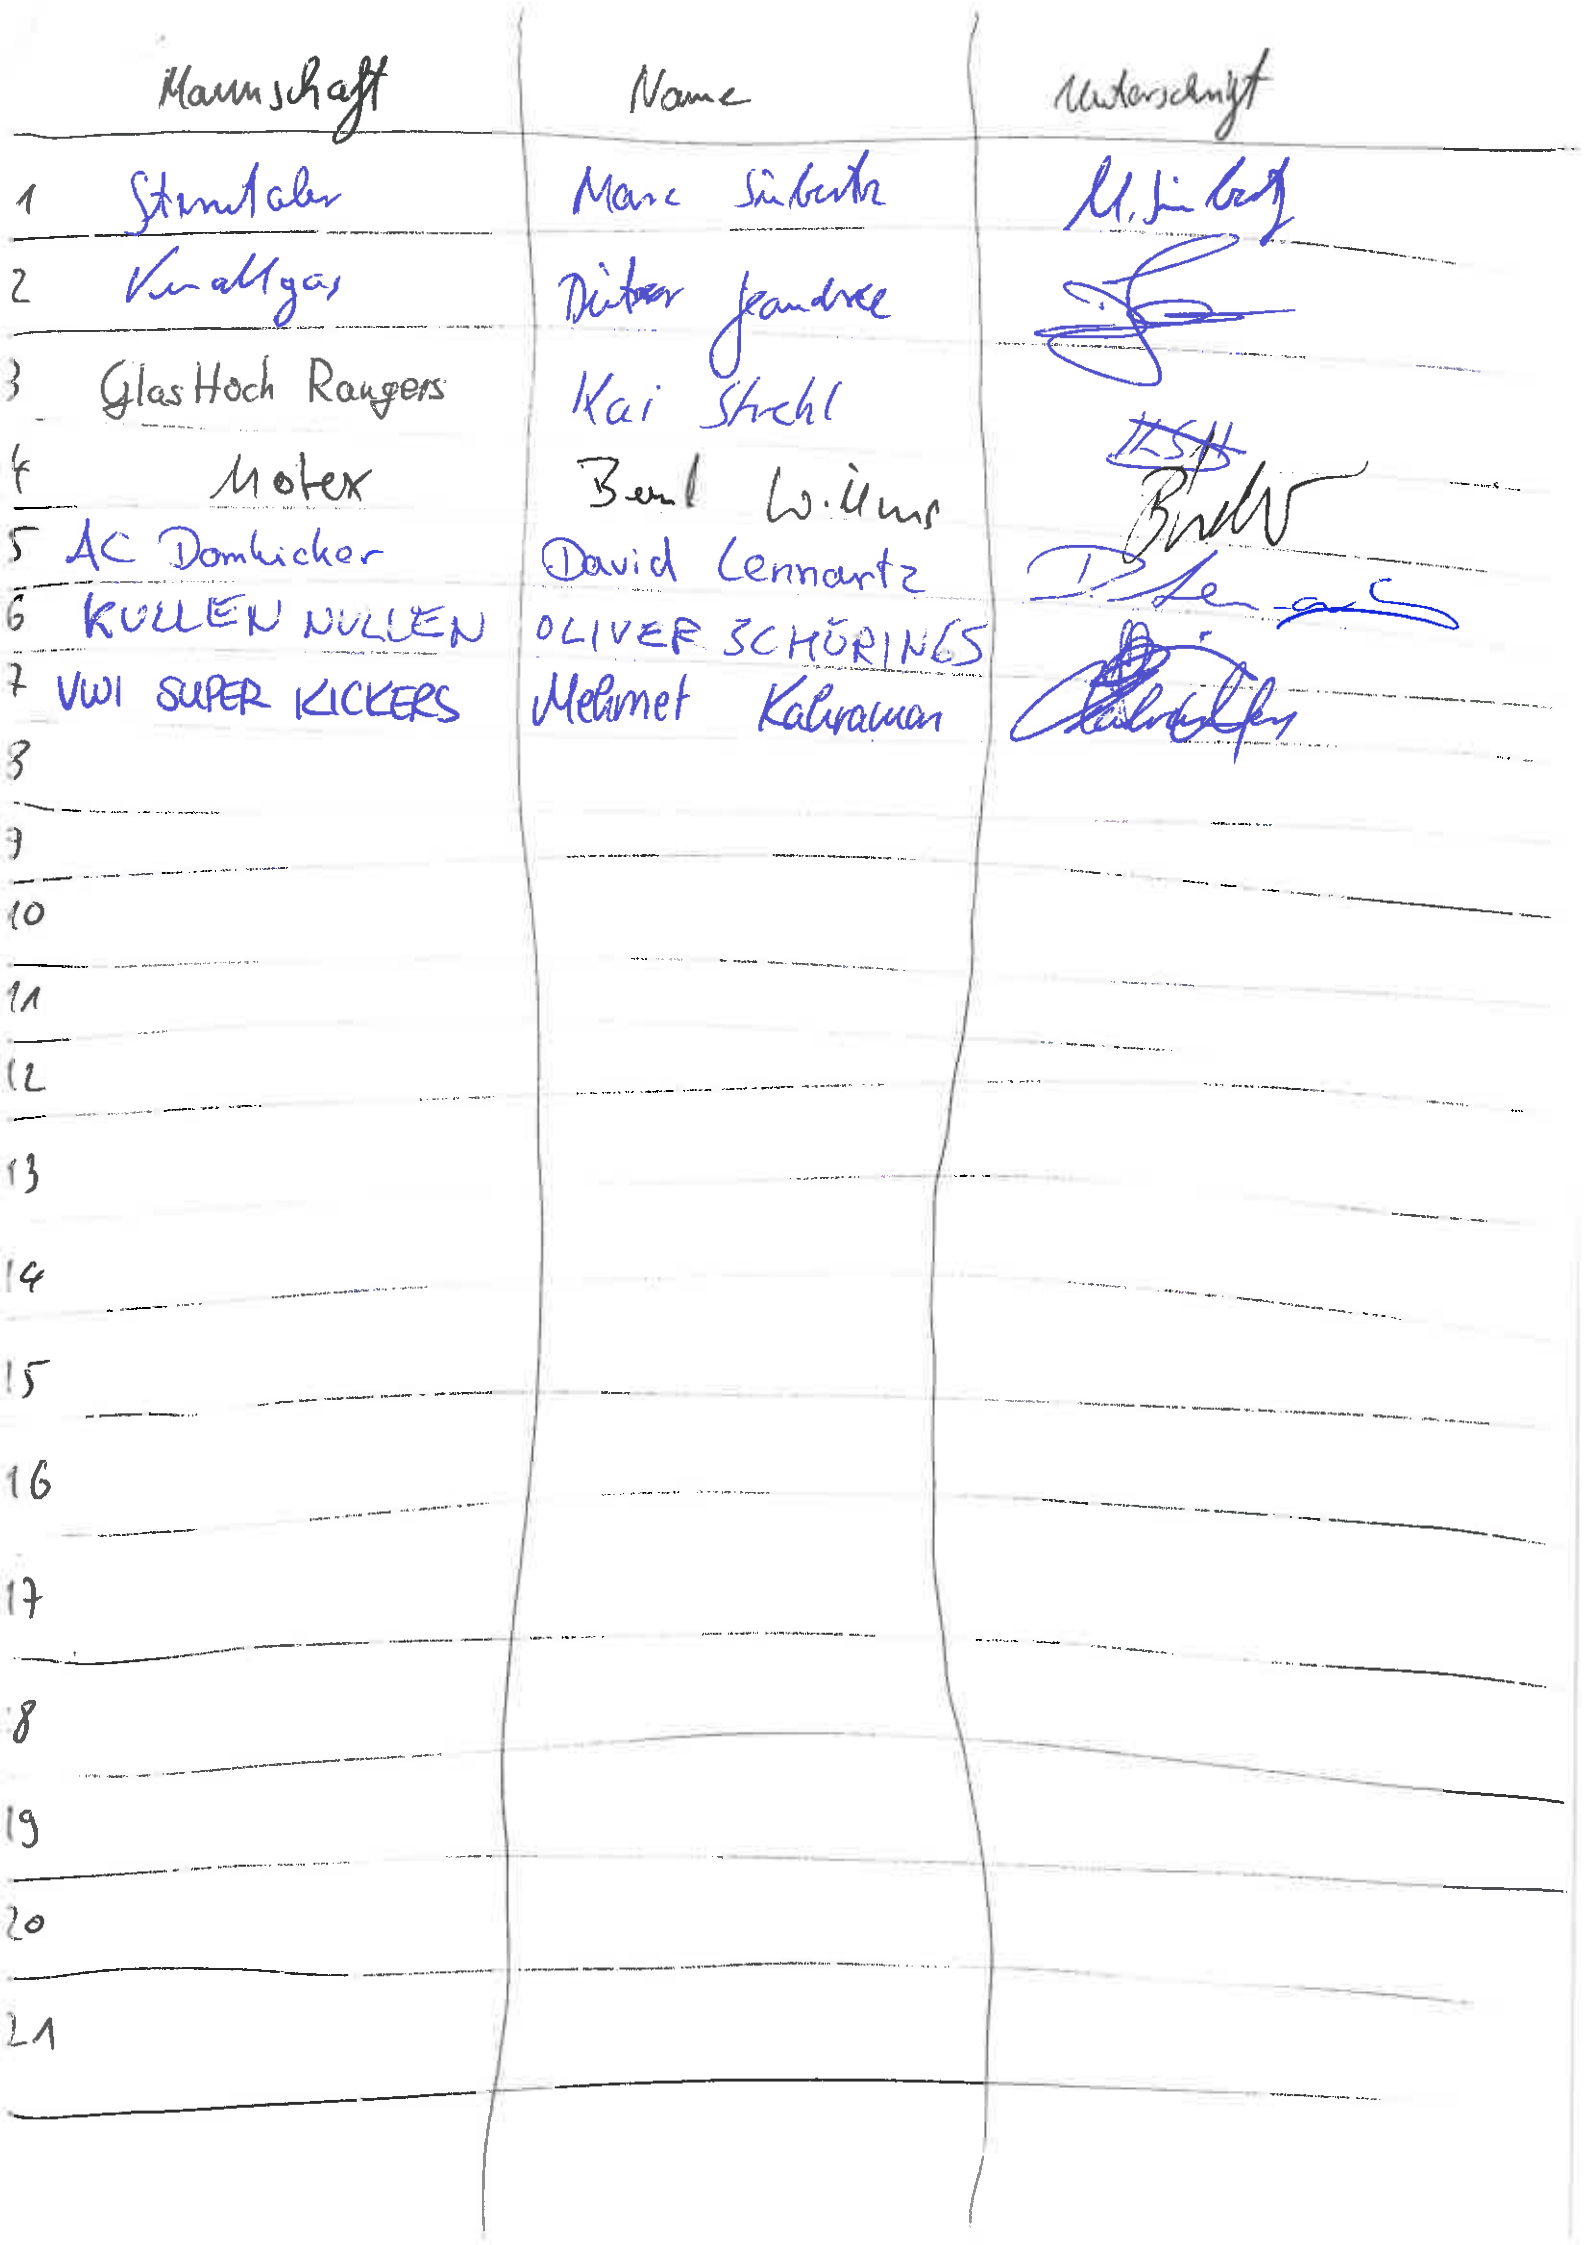 Mannschaft Name Unterschrift
1 Sterntaler Marc Siebertz M. Siebertz
2 Knallgas Dieter Jeandree
3 GlasHoch Rangers Kai Strehl KSH
4 Motex Bernd Willms
5 AC Domkicker David Lennartz D. Lennartz
6 KULLEN NULLEN OLIVER SCHÖRINGS
7 VWI SUPER KICKERS Mehmet Kahraman
8
9
10
11
12
13
14
15
16
17
18
19
20
21